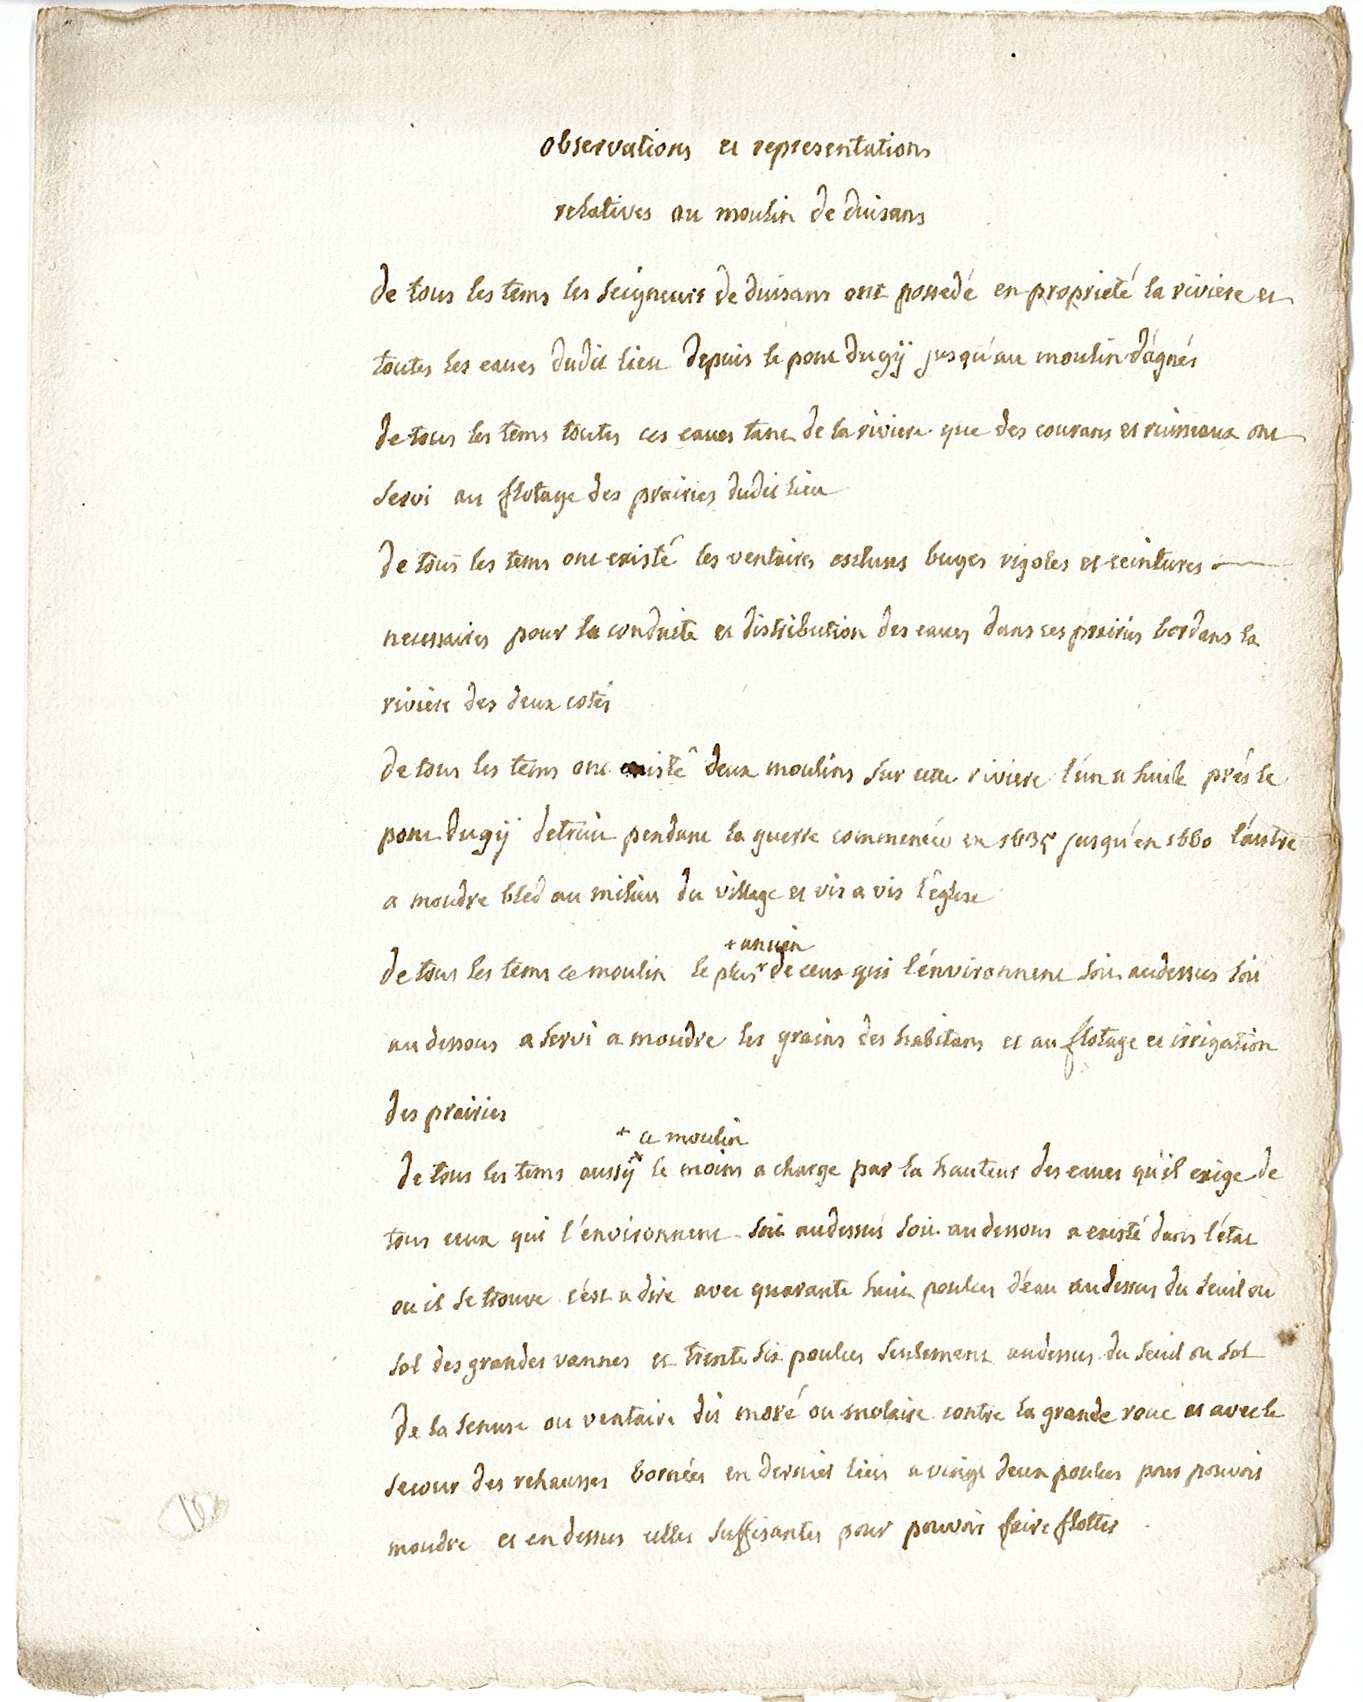 observations et representations
relatives au moulin de duisans
de tous les tems les seigneurs de duisans ont possedé en proprieté la riviere et
toutes les eaues dudit lieu depuis le pont dugÿ jusqu'au moulin d'agnés
de tous les tems toutes ces eaues tant de la riviere que des courans et ruisseaux ont
servi au flotage des prairies dudit lieu
de tous les tems ont existé les ventaires escluses buges rigoles et ceintures
necessaires pour la conduite et distribution des eaues dans ces prairies bordans la
riviere des deux cotés
de tous les tems ont existé deux moulins sur cette riviere l'un a huile prés le
pont dugÿ detruit pendant la guerre commencée en 1635 jusqu'en 1660 l'autre
a moudre bled au milieu du village et vis a vis l'église
+ ancien
de tous les tems ce moulin le plus + de ceux qui l'environnent soit audessus soit
au dessous a servi a moudre les grains des habitans et au flotage et irrigation
des prairies
+ ce moulin
de tous les tems aussÿ + le moins a charge par la hauteur des eaues qu'il exige de
tous ceux qui l'environnent soit audessus soit au dessous a existé dans l'état
ou il se trouve c'est a dire avec quarante huit poulces d'eau audessus du seuil ou
sol des grandes vannes et trente six poulces seulement audessus du seuil ou sol
de la ou ventaire dit moré ou molaire contre la grande roue et avec le
secour des rehausses bornées en dernier lieu a vingt deux poulces pour pouvoir
moudre et en dessus celles suffisantes pour pouvoir faire flotter